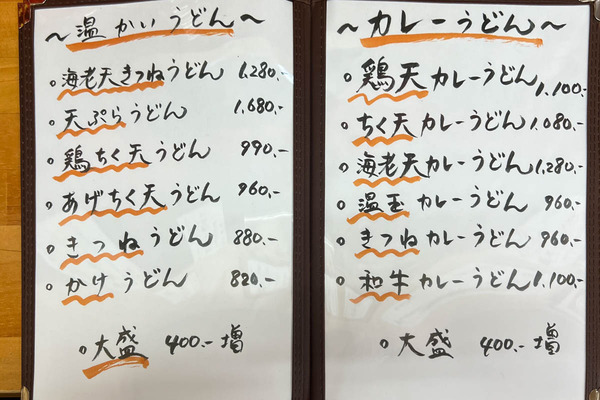 ～温かいうどん～
○海老天きつねうどん 1,280.-
○天ぷらうどん 1,680.-
○鶏ちく天うどん 990.-
○あげちく天うどん 960.-
○きつねうどん 880.-
○かけうどん 820.-
○大盛 400.-増
～カレーうどん～
○鶏天カレーうどん 1,100.-
○ちく天カレーうどん 1,080.-
○海老天カレーうどん 1,280.-
○温玉カレーうどん 960.-
○きつねカレーうどん 960.-
○和牛カレーうどん 1,100.-
○大盛 400.-増